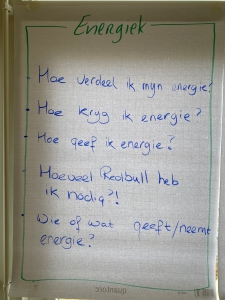 Energiek
- Hoe verdeel ik mijn energie?
- Hoe kryg ik energie?
- Hoe geef ik energie?
- Hoeveel Redbull heb
ik nodig?!
- Wie of wat geeft/neemt
energie?